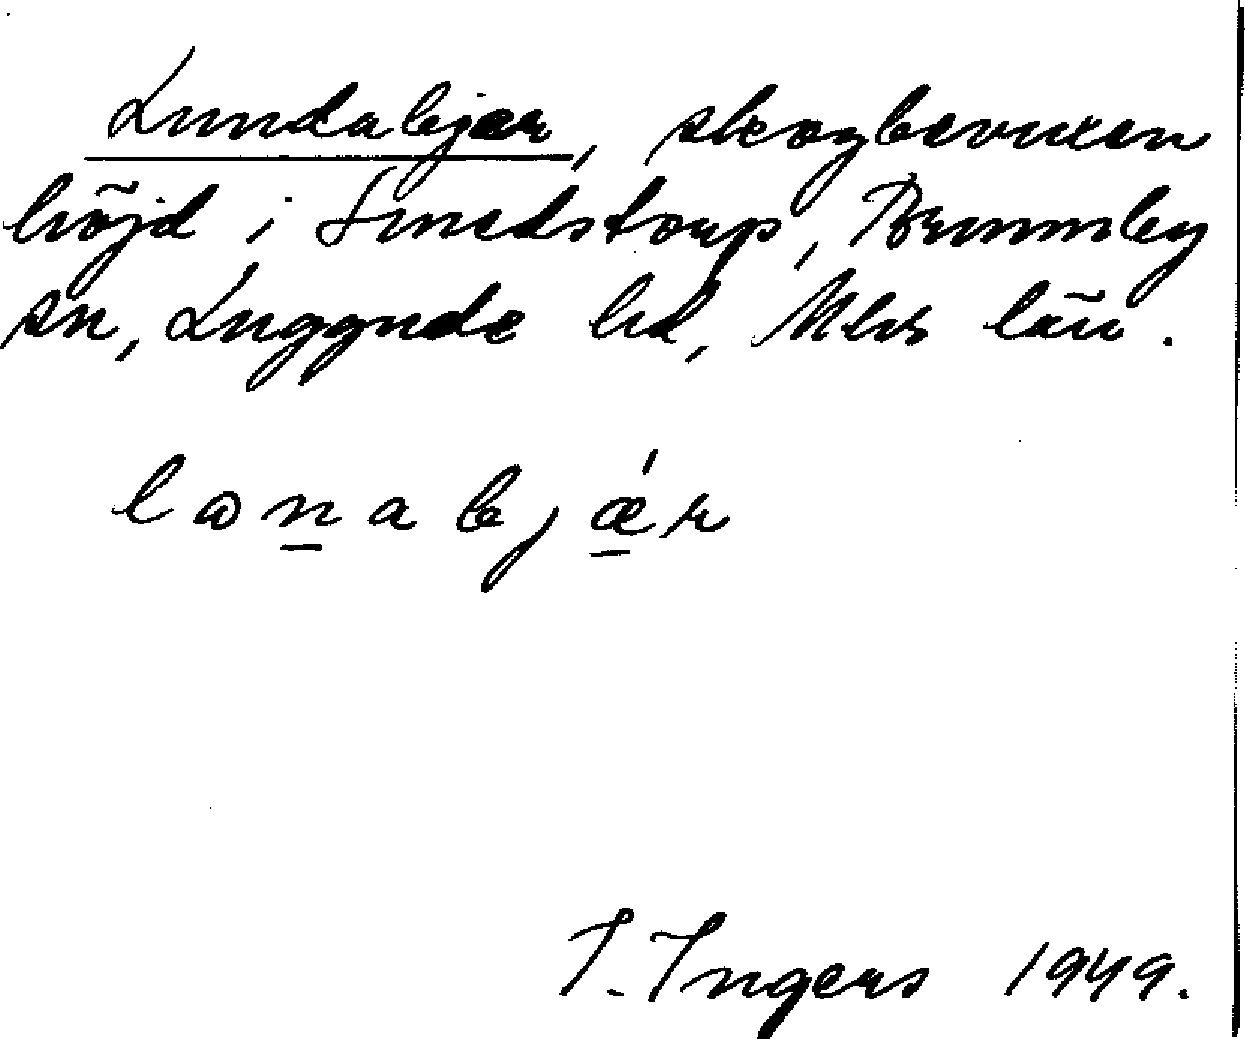 Lundabjær, skogbevuxen
höjd i Smedstorp, Brunnby
sn, Luggude hd, Mlhs län.
lωnabjǽr
I. Ingers 1949.